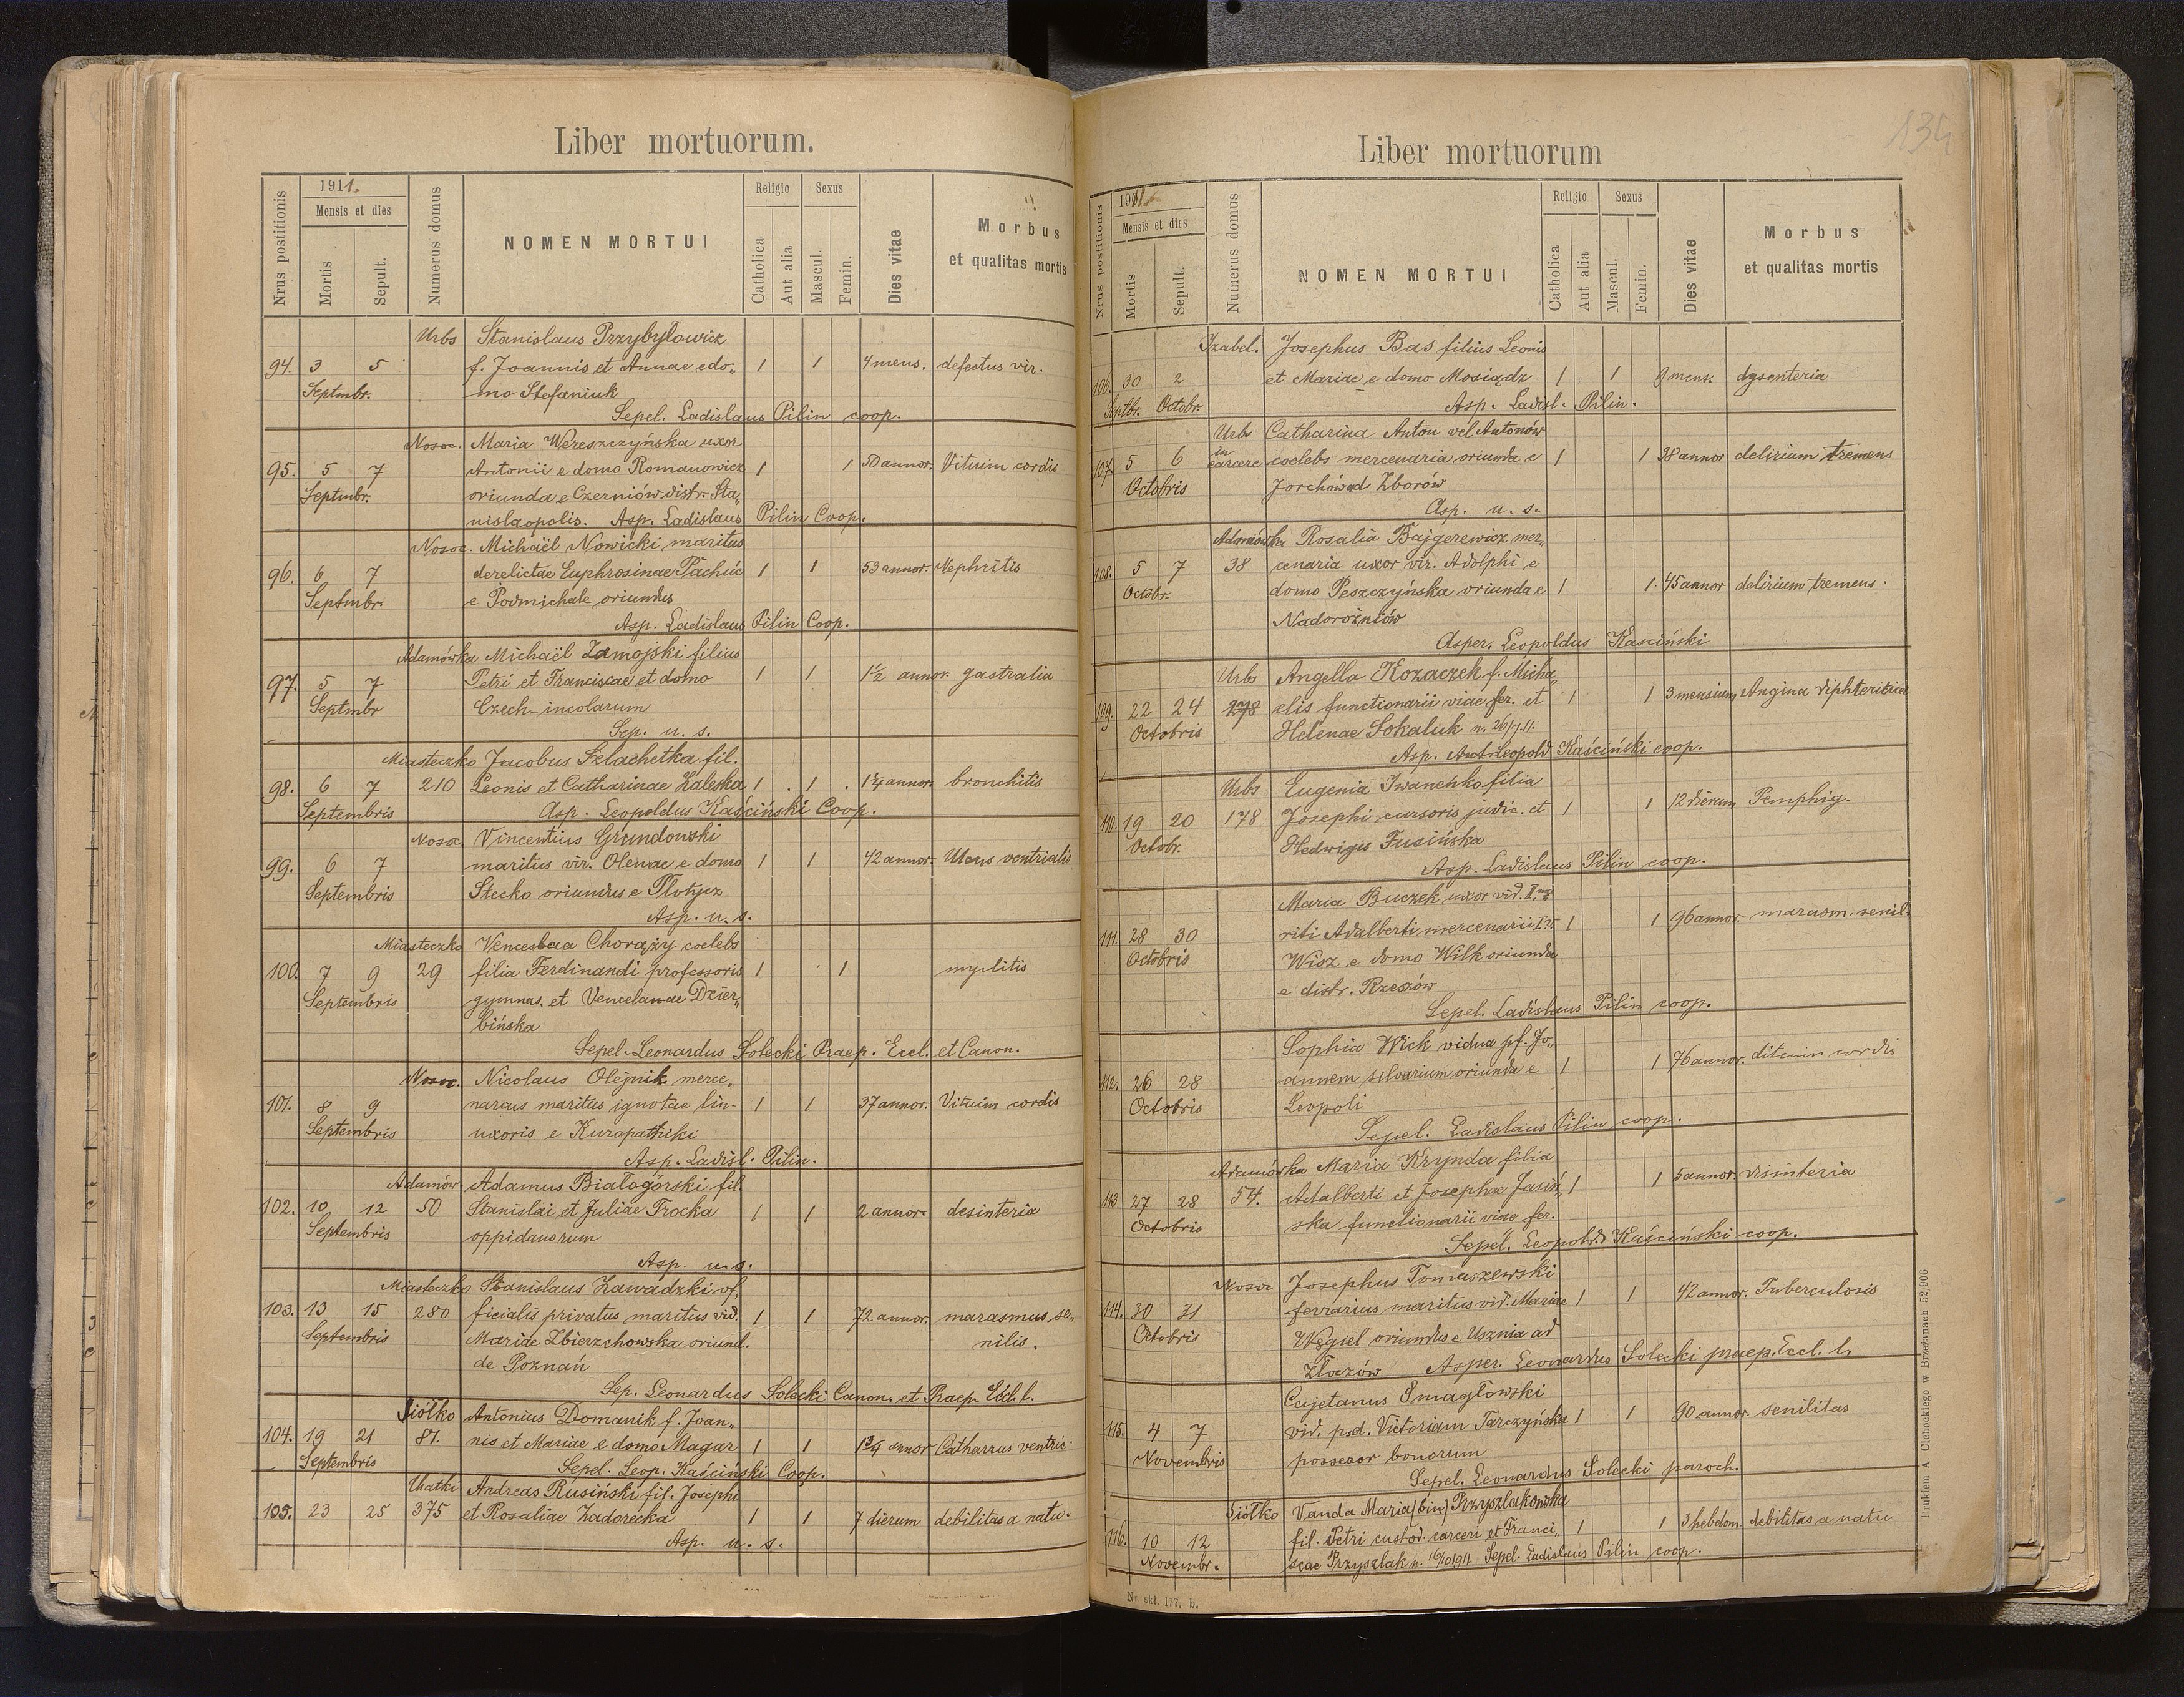 Liber mortuorum.
Nrus postitionis
1911.
Mensis et dies
Mortis
Sepult.
Numerus domus
NOMEN MORTUI
Religio
Catholica
Aut alia
Sexus
Mascul.
Femin.
Dies vitae
Morbus
et qualitas mortis
Urbs Stanislaus Przybyłowicz
94. 3 5 f. Joannis et Annae e do„ 1 1 4 mens. defectus vir.
Septmbr. mo Stefaniuk
Sepel. Ladislaus Pilin coop.
Nosoc. Maria Wereszczyńska uxor
95. 5 7 Antonii e domo Romanowicz 1 1 50 annor. Vituim cordis
Septmbr. oriunda e Czerniów distr. Sta„
nislaopolis. Asp. Ladislaus Pilin Coop.
Nosoc. Michaël Nowicki maritus
96. 6 7 derelictae Euphrosinae Pachuć 1 1 53 annor. Nephritis
Septmbr. e Podmichale oriundus
Asp. Ladislaus Pilin Coop.
Adamówka Michaël Zamojski filius
97. 5 7 Petri et Franciscae et domo 1 1 1½ annor. gastralia
Septmbr Czech incolarum
Sep. u. s.
Miasteczko Jacobus Szlachetka fil.
98. 6 7 210 Leonis et Catharinae Zaleska 1 1 1¼ annor. bronchitis
Septembris Asp. Leopoldus Kaściński Coop.
Nosoc. Vincentius Grundowski
99. 6 7 maritus vir. Olenae e domo 1 1 42 annor. Ulcus ventrialis
Septembris Stecko oriundus e Płotycz
Asp. u. s.
Miasteczko Venceslaa Chorąży coelebs
100. 7 9 29 filia Ferdinandi professoris 1 1 myelitis
Septembris gymnas. et Vencelanae Dzier„
bińska
Sepel. Leonardus Solecki Praep. Eccl. et Canon.
Nosoc. Nicolaus Olejnik merce„
101. 8 9 narcus maritus ignotae lin- 1 1 37 annor. Vituim cordis
Septembris uxoris e Kuropathiki
Asp. Ladisl. Pilin.
Adamów Adamus Białogórski fil.
102. 10 12 50 Stanislai et Juliae Trocka 1 1 2 annor. desinteria
Septembris oppidanorum
Asp. u. s.
Miasteczko Stanislaus Zawadzki of„
103. 13 15 280 ficialis privatus maritus vid. 1 1 72 annor. marasmus se„
Septembris Mariae Zbierzchowska oriund. nilis.
de Poznań
Sep. Leonardus Solecki Canon. et Praep. Eccl. l.
Siółko Antonius Domanik f. Joan„
104. 19 21 87. nis et Mariae e domo Magar 1 1 1¾ annor Catharrus ventric.
Septembris Sepel. Leop. Kaściński Coop.
Chatki Andreas Rusiński fil. Josephi
105. 23 25 375 et Rosaliae Zadorecka 1 1 7 dierum debilitas a natu.
Asp. u. s.
134
Liber mortuorum
Nrus postitionis
1911.
Mensis et dies
Mortis
Sepult.
Numerus domus
NOMEN MORTUI
Religio
Catholica
Aut alia
Sexus
Mascul.
Femin.
Dies vitae
Morbus
et qualitas mortis
Izabel. Josephus Bas filius Leonis
106. 30 2 et Mariae e domo Mosiądz 1 1 9 mens. dysenteria
Septbr. Octobr. Asp. Ladisl. Pilin.
Urbs Catharina Anton vel Antonów
107. 5 6 in carcere coelebs mercenaria oriunda e 1 1 38 annor delirium tremens
Octobris Jorchów ad Zborów
Asp. u. s.
Adamówka Rosalia Bajgerewicz mer„
108. 5 7 38 cenaria uxor vir. Adolphi e
Octobr. domo Peszczyńska oriunda e 1 1 45 annor delirium tremens.
Nadorożniów
Asper. Leopoldus Kasciński
Urbs Angella Kozaczek f. Micha„
109. 22 24 278 elis functionarii viae fer. et 1 1 3 mensium Angina diphteritica
Octobris Helenae Sokaluk n. 26/7.11.
Asp. Leopold Kaściński coop.
Urbs Eugenia Iwaneńko filia
110. 19 20 178 Josephi cursoris judic. et 1 1 12 dierum Pemphig.
Octobr. Hedwigis Fusińska
Asp. Ladislaus Pilin coop.
Maria Buczek uxor vid. II. ma„
111. 28 30 riti Adalberti mercenarii I v. 1 1 96 annor. marasm. senil.
Octobris Wisz e domo Wilk oriunda
e distr. Rzeszów
Sepel. Ladislaus Pilin coop.
Sophia Wick vidua pf. Jo„
112. 26 28 annem silvarium oriunda e 1 1 76 annor. vituim cordis
Octobris Leopoli
Sepel. Ladislaus Pilin coop.
Adamówka Maria Krynda filia
113. 27 28 54. Adalberti et Josephae Jasiń„ 1 1 5 annor. disinteria
Octobris ska functionarii viae fer.
Sepel. Leopold. Kaściński coop.
Nosoc Josephus Tomaszewski
114. 30 31 ferrarius maritus vid. Mariae 1 1 42 annor. Tuberculosis
Octobris Węgiel oriundus e Usznia ad
Złoczów Asper. Leonardus Solecki praep. Eccl. l.
Cajetanus Smagłowski
115. 4 7 vid. p.d. Victoriam Tarczyńska 1 1 90 annor. senilitas
Novembris possesor bonorum
Sepel. Leonardus Solecki paroch.
Siółko Vanda Maria (bin) Przyszlakowska
116. 10 12 fil. Petri custod. carceri et Franci„ 1 1 3 hebdom. debilitas a natu
Novembr. scae Przyszlak n. 16/10 1911 Sepel. Ladislaus Pilin coop.
Drukiem A Cichockiego w Brzeżanach 52/906
No skł. 177. b.